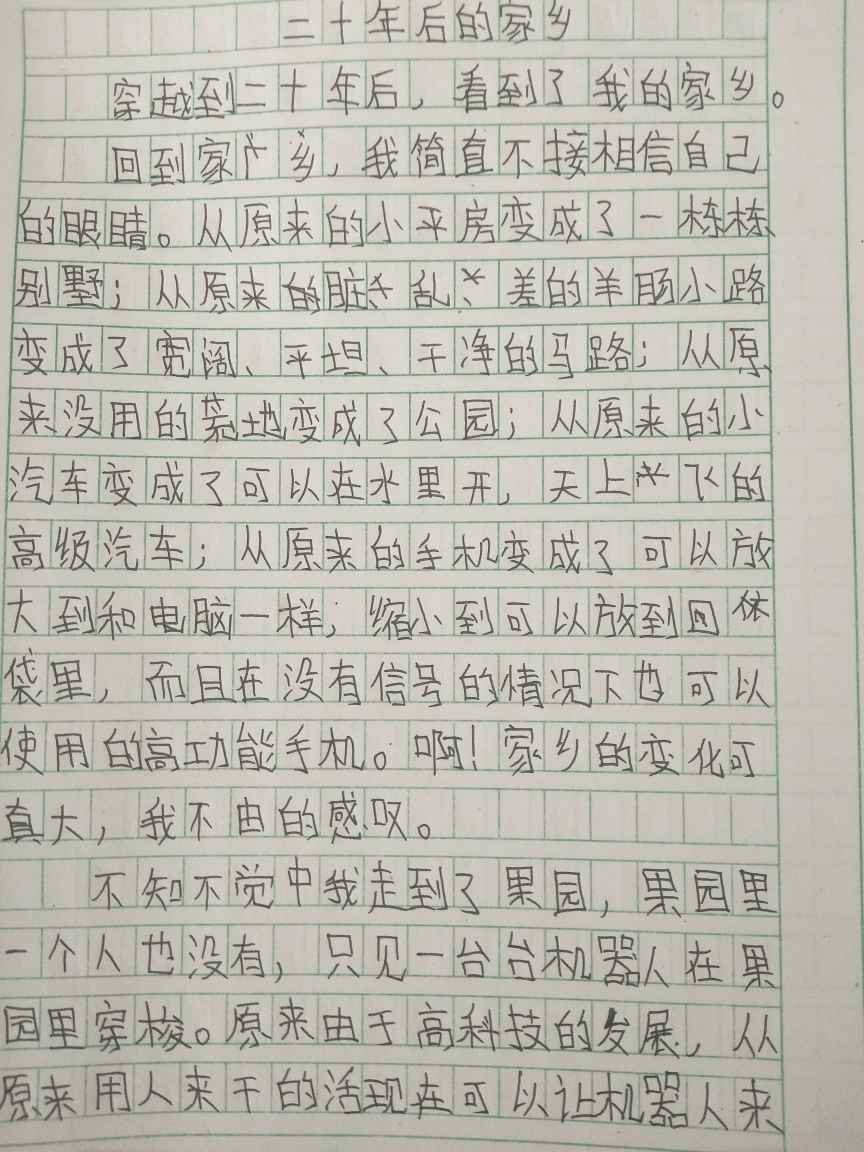 二十年后的家乡
穿越到二十年后，看到了我的家乡。
回到家乡，我简直不接相信自己
的眼睛。从原来的小平房变成了一栋栋
别墅；从原来的脏乱差的羊肠小路
变成了宽阔、平坦、干净的马路；从原
来没用的荒地变成了公园；从原来的小
汽车变成了可以在水里开，天上飞的
高级汽车；从原来的手机变成了可以放
大到和电脑一样，缩小到可以放到口
袋里，而且在没有信号的情况下也可以
使用的高功能手机。啊！家乡的变化可
真大，我不由的感叹。
不知不觉中我走到了果园，果园里
一个人也没有，只见一台台机器人在果
园里穿梭。原来由于高科技的发展，从
原来用人来干的活现在可以让机器人来